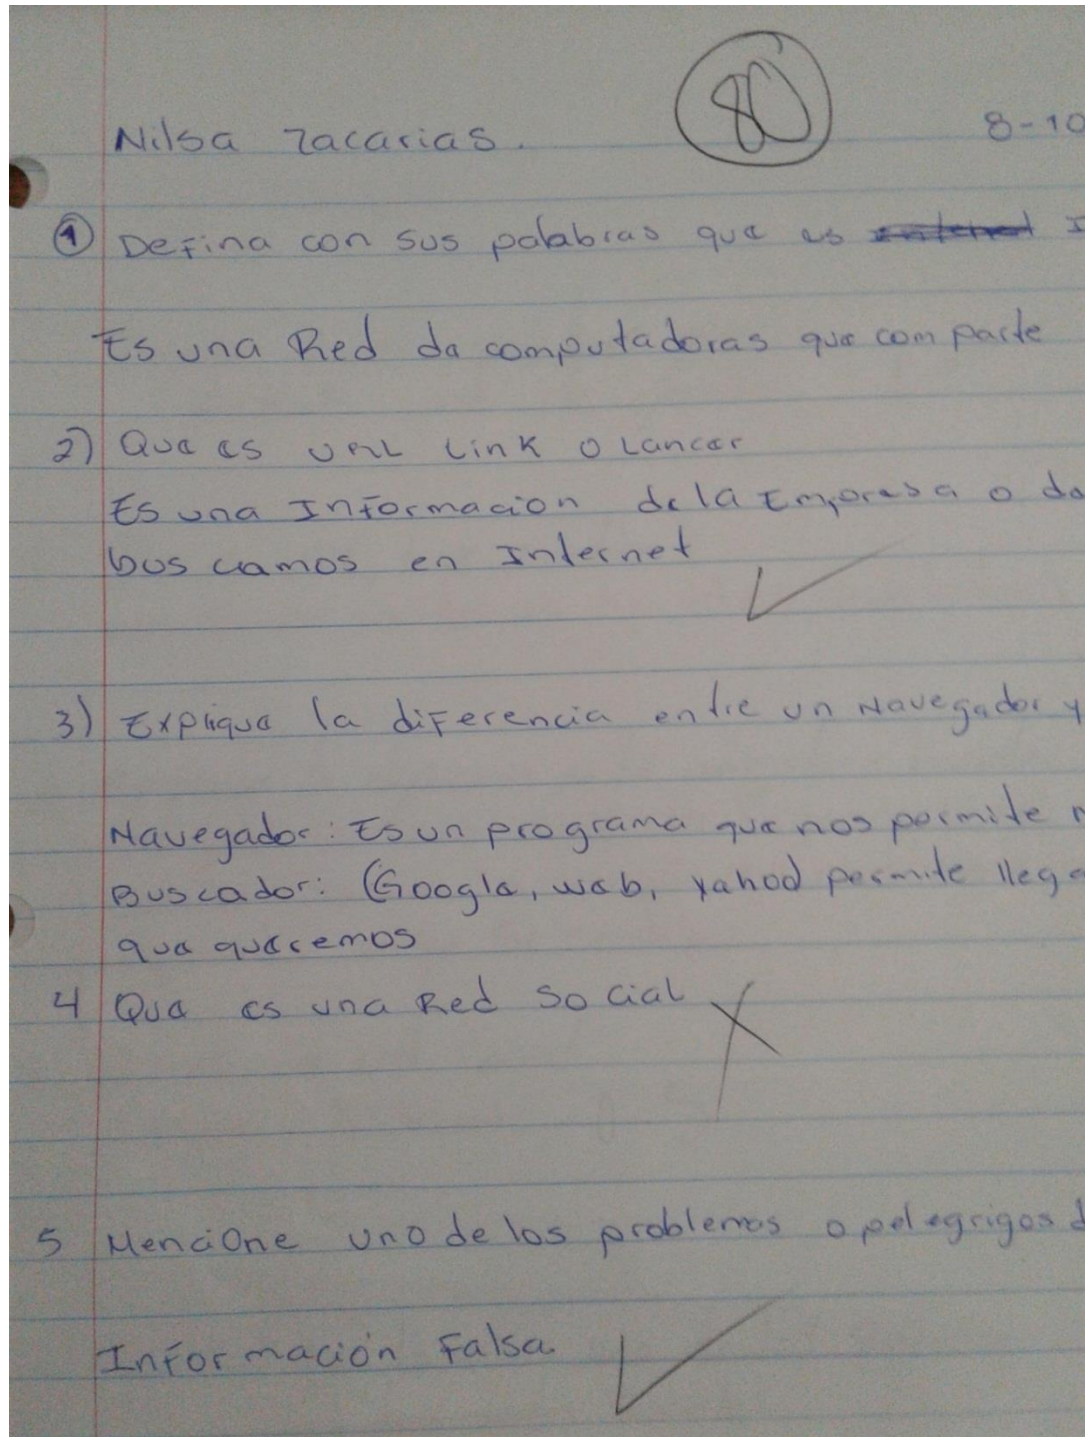 80
Nilsa Zacarias. 8-10
1 Defina con sus palabras que es
Es una Red de computadoras que comparte
2) Que es URL Link o Lancer
Es una Informacion de la Empresa o de
buscamos en Internet
3) Explique la diferencia entre un Navegador y
Navegador: Es un programa que nos permite
Buscador: (Google, web, yahoo) permite
que queremos
4 Que es una Red Social
5 Mencione uno de los problemas o pelegrigos
Información Falsa